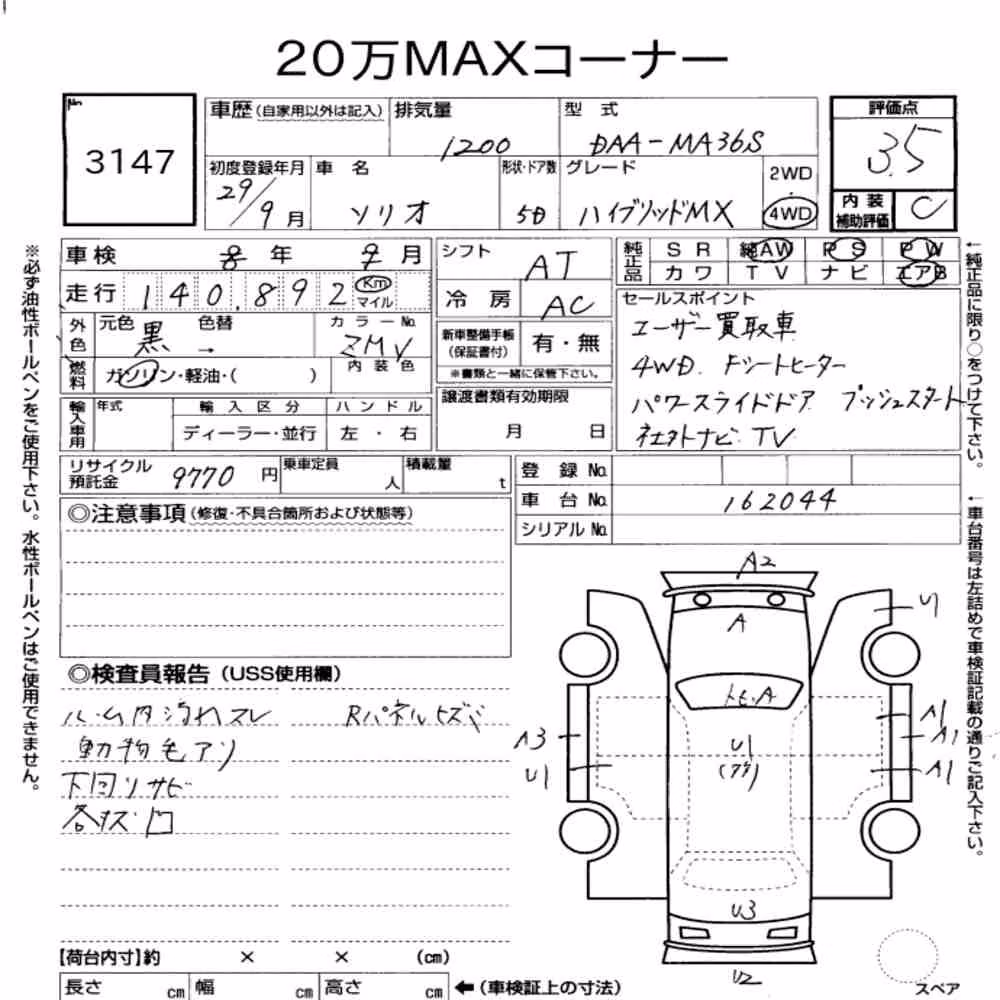 20万MAXコーナー
No.
3147
車歴 (自家用以外は記入) 排気量 型式
1200 DAA-MA36S
初度登録年月 車名 形状・ドア数 グレード
29/9月 ソリオ 5D ハイブリッドMX
2WD
・
4WD
評価点
3.5
内装
補助評価 C
車検 8年 9月
走行 140,892 Km マイル
外色 元色 黒 色替 → カラーNo. ZMV
内装色
燃料 ガソリン・軽油・( )
輸入車用 年式 輸入区分 ハンドル
ディーラー・並行 左・右
シフト AT
冷房 AC
新車整備手帳
(保証書付) 有・無
※書類と一緒に保管下さい。
譲渡書類有効期限
月 日
純正品 SR 純AW PS PW
カワ TV ナビ エアB
セールスポイント
ユーザー買取車
4WD. シートヒーター
パワースライドドア プッシュスタート
社外ナビ TV
リサイクル
預託金 9770円 乗車定員 人 積載量 t
登録No.
車台No. 162044
シリアルNo.
◎注意事項 (修復・不具合箇所および状態等)
◎検査員報告 (USS使用欄)
ルーム内汚れスレ Rパネルヒズミ
動物毛アリ
下回リサビ
各キズ凹
A2
A
U1
トビA
A3
U1
U1
(アゲ)
A1
A1
A1
U3
U2
スペア
【荷台内寸】約 × × (cm)
長さ cm 幅 cm 高さ cm ←(車検証上の寸法)
※必ず油性ボールペンをご使用下さい。水性ボールペンはご使用できません。
←純正品に限り○をつけて下さい。
←車台番号は左詰めで車検証記載の通りご記入下さい。